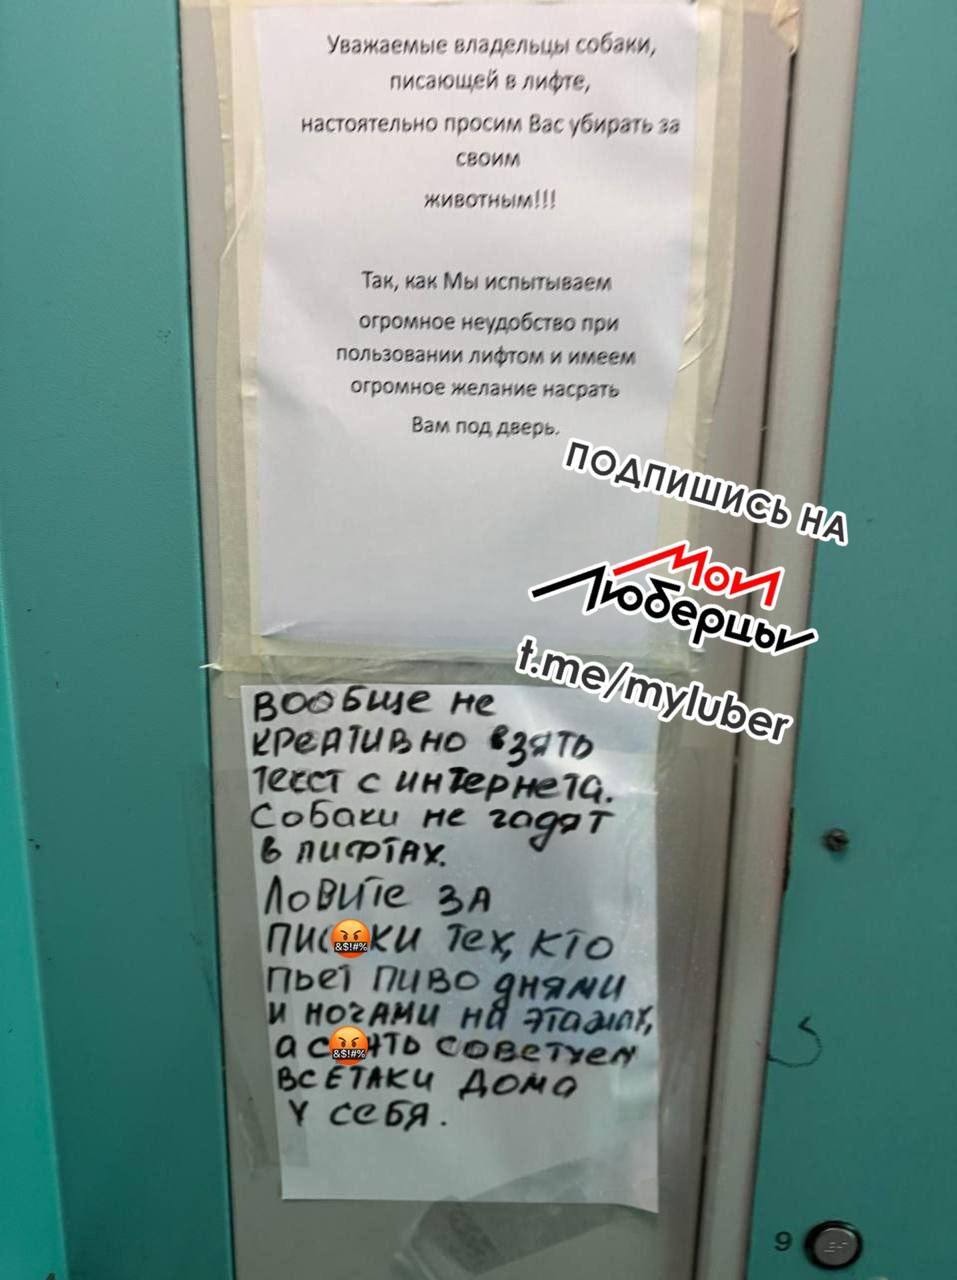 Уважаемые владельцы собаки,
писающей в лифте,
настоятельно просим Вас убирать за
своим
животным!!!
Так, как Мы испытываем
огромное неудобство при
пользовании лифтом и имеем
огромное желание насрать
Вам под дверь.
ПОДПИШИСЬ НА
Мои
Люберцы
t.me/myluber
Вообще не
креативно взять
текст с интернета.
Собаки не гадят
в лифтах.
Ловите за
пис🤬ки тех, кто
пьет пиво днями
и ночами на этажах,
а с🤬ть советуем
всетаки дома
у себя.
9